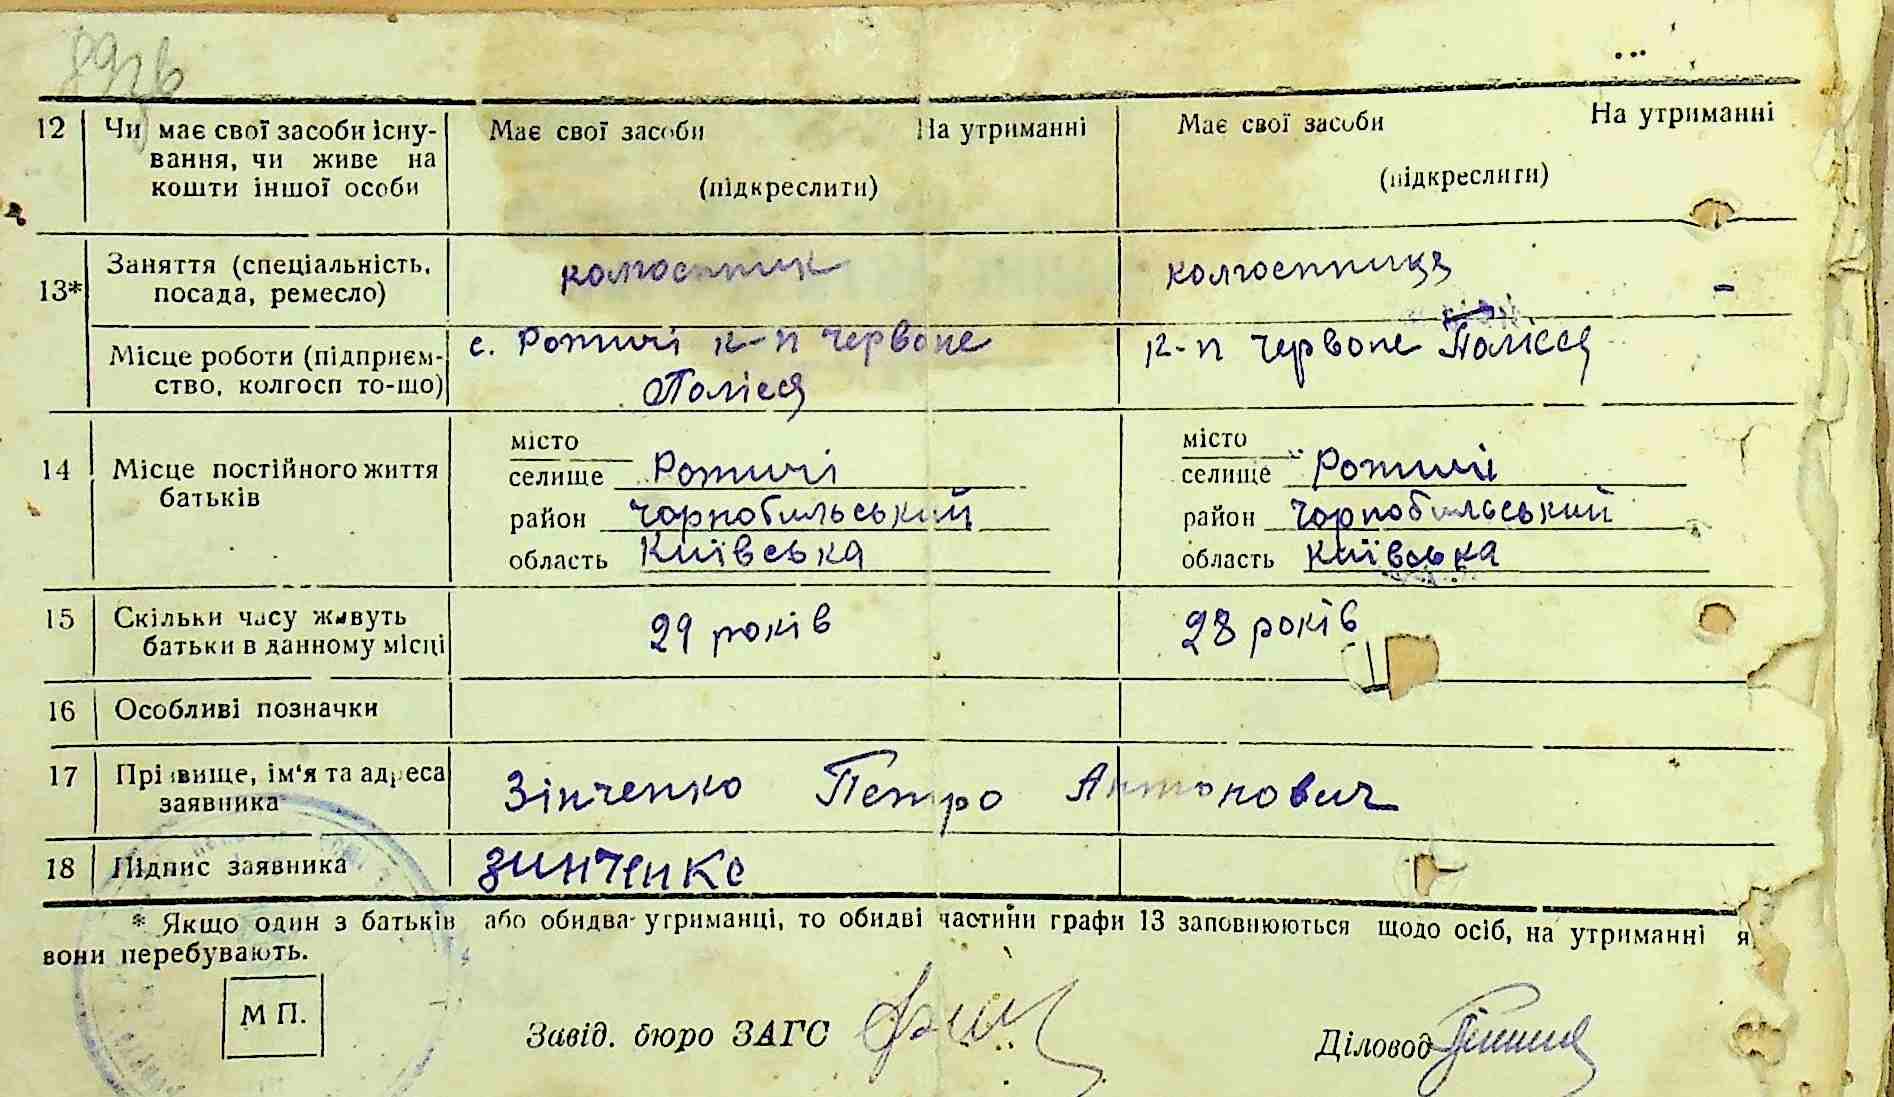 12 Чи має свої засоби існу- Має свої засоби На утриманні Має свої засоби На утриманні
вання, чи живе на
кошти іншої особи (підкреслити) (підкреслити)
13* Заняття (спеціальність, колгоспник колгоспниця -
посада, ремесло)
Місце роботи (підприєм- с. Рожичі к-п Червоне к-п Червоне Полісся
ство, колгосп то-що) Полісся
місто місто
14 Місце постійного життя селище селище
батьків район Чорнобильський район Чорнобильський
область Київська область Київська
15 Скільки часу живуть 29 років 28 років
батьки в данному місці
16 Особливі позначки
17 Прізвище, ім'я та адреса Зінченко Петро Антонович
заявника
18 Підпис заявника Зинченко
* Якщо один з батьків або обидва утриманці, то обидві частини графи 13 заповнюються щодо осіб, на утриманні я
вони перебувають.
М П.
Завід. бюро ЗАГС Діловод